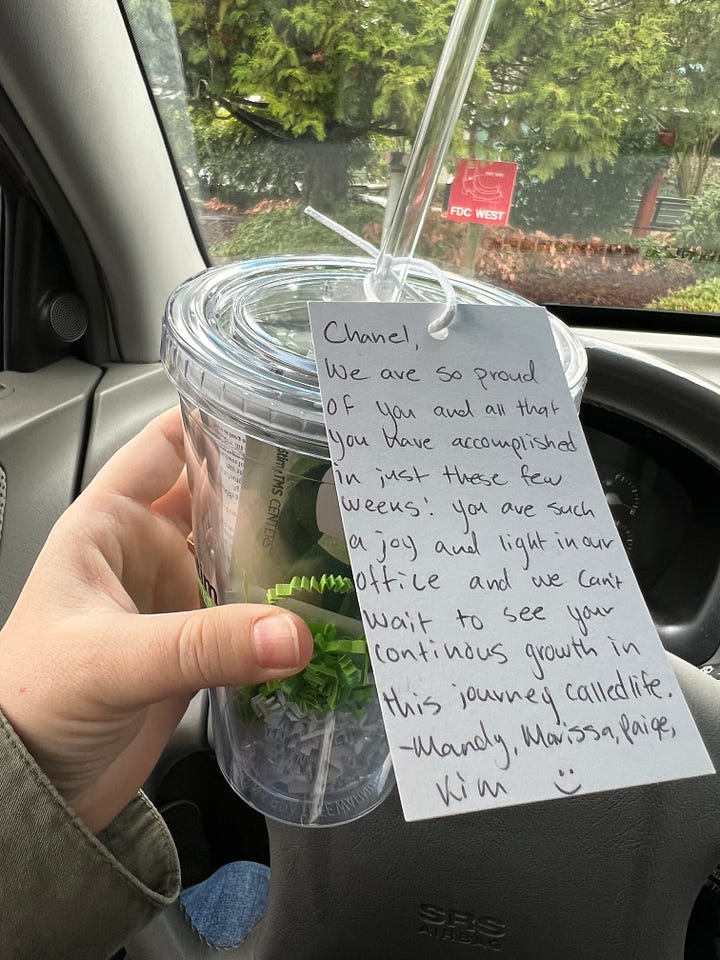 FDC WEST
Chanel,
We are so proud
of you and all that
you have accomplished
in just these few
weeks! you are such
a joy and light in our
office and we can't
wait to see your
continuous growth in
this journey called life.
-Mandy, Marissa, Paige,
Kim
TMS CENTERS
SRS
AIRBAG